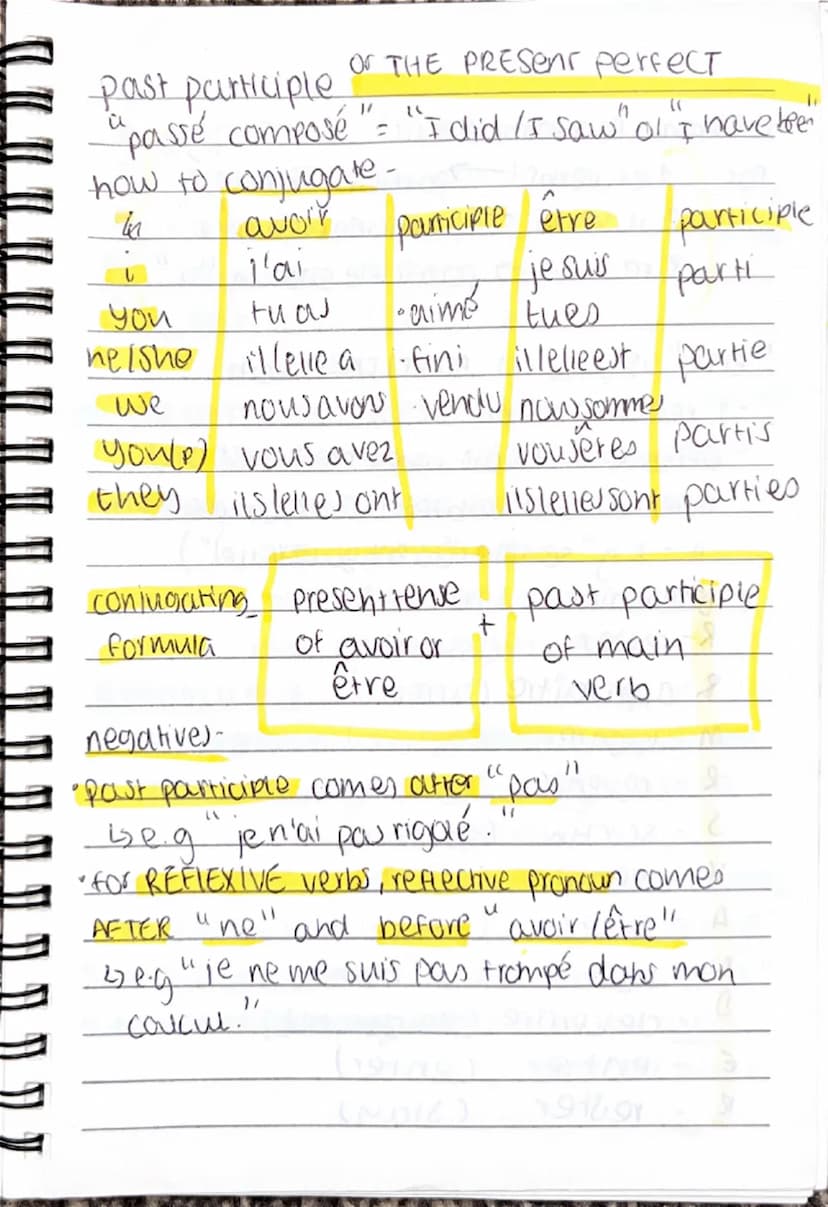 past participle or THE PRESENT PERFECT
"passé composé" = "I did / I saw" or "I have been"
how to conjugate -
avoir participle être participle
i j'ai je suis parti
you tu as • aimé tu es
he/she il/elle a • fini il/elle est partie
we nous avons • vendu nous sommes
you(p) vous avez vous êtes partis
they ils/elles ont ils/elles sont parties
conjugating present tense + past participle
formula of avoir or of main
être verb
negatives -
• past participle comes after "pas"
↳ e.g "je n'ai pas rigolé."
• for REFLEXIVE verbs, reflective pronoun comes
AFTER "ne" and before "avoir/être"
↳ e.g "je ne me suis pas trompé dans mon
calcul."